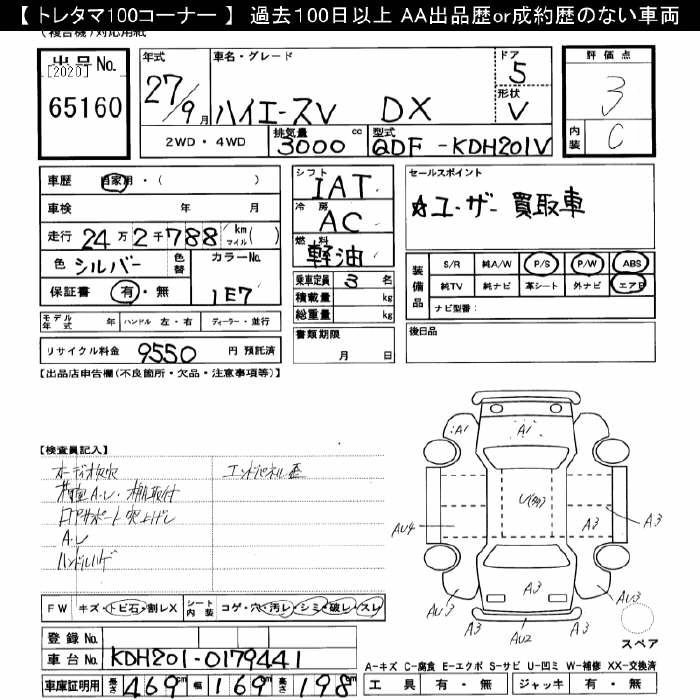 【 トレタマ100コーナー 】 過去100日以上 AA出品歴or成約歴のない車両
(複合機)対応用紙
出品No.
[2020]
65160
年式
27/9月
車名・グレード
ハイエースV DX
ドア
5
形状
V
評価点
3
内装
C
2WD・4WD
排気量
3000cc
型式
QDF-KDH201V
車歴 自家用・( )
車検 年 月
走行 24万2千788 km/マイル( )
色 シルバー 色替
カラーNo.
1E7
保証書 有・無
モデル年式 年 ハンドル 左・右 ディーラー・並行
リサイクル料金 9550 円 預託済
シフト
IAT
冷房
AC
燃料
軽油
乗車定員 3 名
積載量 kg
総重量 kg
書類期限
月 日
セールスポイント
☆ユーザー買取車
装備品
S/R 純A/W P/S P/W ABS
純TV 純ナビ 革シート 外ナビ エアB
ナビ型番:
後日品
【出品店申告欄(不良箇所・欠品・注意事項等)】
【検査員記入】
エンドパネル歪
A・L
ハンドルハゲ
A1
A1
U(多)
AU4
A3
A3
A3
AU3
AU2
AU3
スペア
FW キズ・トビ石・割レX シート内装 コゲ・穴・汚レ・シミ・破レ・スレ
登録No.
車台No. KDH201-0179441
車庫証明用 長さ 469cm 幅 169cm 高さ 198cm
A-キズ C-腐食 E-エクボ S-サビ U-凹ミ W-補修 XX-交換済
工具 有・無 ジャッキ 有・無